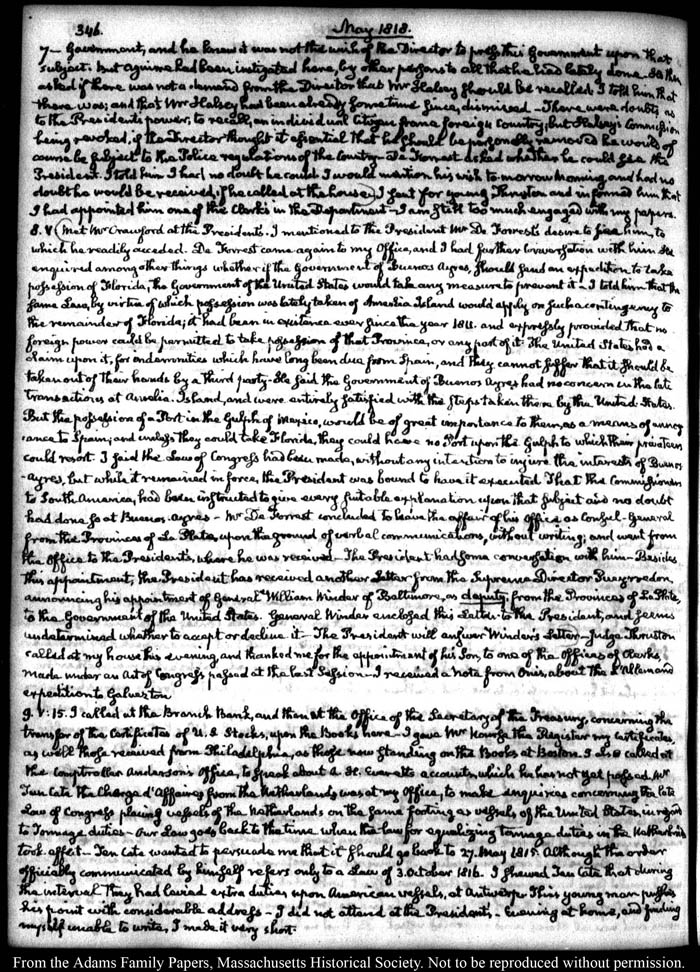 346.
May 1818.
7— Government, and he knew it was not the wish of the Director to press this Government upon that
subject. but Aguirre had been instigated here, by other persons to all that he had lately done. He then
asked if there was not a demand from the Director that Mr Halsey should be recalled. I told him that
there was; and that Mr Halsey had been already some time since, dismissed — There were doubts as
to the President's power, to recall, an individual citizen from a foreign country, but Halsey's Commission
being revoked, if the Director thought it essential that he should be personally removed he would of
course be subject to the Police regulations of the Country. De Forrest asked whether he could see the
President. I told him I had no doubt he could. I would mention his wish to-morrow morning, and had no
doubt he would be received, if he called at the house. I sent for young Thruston and informed him that
I had appointed him one of the Clerks in the Department — I am still too much engaged with my papers.
8. V. Met Mr Crawford at the President's. I mentioned to the President Mr De Forrest's desire to see him, to
which he readily acceded. De Forrest came again to my Office, and I had further conversation with him. He
enquired among other things whether if the Government of Buenos Ayres, should send an expedition to take
possession of Florida, the Government of the United States would take any measure to prevent it — I told him that the
same Law, by virtue of which possession was lately taken of Amelia Island would apply on such a contingency to
the remainder of Florida; it had been in existence ever since the year 1811. and expressly provided that no
foreign power could be permitted to take possession of that Province, or any part of it. The United States had a
claim upon it, for indemnities which have long been due from Spain, and they cannot suffer that it should be
taken out of their hands by a third party. He said the Government of Buenos Ayres had no concern in the late
transactions at Amelia Island, and were entirely satisfied with the steps taken there by the United States.
But the possession of a Port in the Gulph of Mexico, would be of great importance to them, as a means of annoy-
-ance to Spain; and unless they could take Florida, they could have no Port upon the Gulph to which their privateers
could resort. I said the Law of Congress had been made, without any intention to injure the interests of Buenos-
-Ayres, but while it remained in force, the President was bound to have it executed. That the Commissioners
to South America, had been instructed to give every suitable explanation upon that subject and no doubt
had done so at Buenos-Ayres — Mr De Forrest concluded to leave the affair of his office as Consul-General
from the Provinces of La Plata, upon the ground of verbal communications, without writing; and went from
the Office to the President's, where he was received — The President had some conversation with him — Besides
this appointment, the President has received another Letter from the Supreme Director Pueyrredon,
announcing his appointment of General William Winder of Baltimore, as deputy from the Provinces of La Plata,
to the Government of the United States. General Winder enclosed this Letter to the President, and seems
undetermined whether to accept or decline it — The President will answer Winder's Letter — Judge Thruston
called at my house this evening, and thanked me for the appointment of his Son, to one of the Offices of Clerks,
made under an Act of Congress passed at the last Session — I received a note from Onis, about the L'Allemand
expedition to Galveston
9. V:15. I called at the Branch Bank, and then at the Office of the Secretary of the Treasury, concerning the
transfer of the Certificates of U.S. Stocks, upon the Books here — I gave Mr Nourse the Register my certificates
as well those received from Philadelphia, as those now standing on the Books at Boston. I also called at
the Comptroller Anderson's Office, to speak about A. H. Everett's accounts, which he has not yet passed. Mr
Ten Cate the Chargé d'Affaires from the Netherlands was at my office, to make enquiries concerning the late
Law of Congress placing vessels of the Netherlands on the same footing as vessels of the United States, in regard
to Tonnage duties — Our Law goes back to the time when the law for equalizing tonnage duties in the Netherlands
took effect — Ten Cate wanted to persuade me that it should go back to 27. May 1815. Although the order
officially communicated by himself refers only to a Law of 3. October 1816. I shewed Ten Cate that during
the interval they had levied extra duties upon American vessels, at Antwerp. This young man pushes
his point with considerable address — I did not attend at the President's — Evening at home, and finding
myself unable to write, I made it very short.
From the Adams Family Papers, Massachusetts Historical Society. Not to be reproduced without permission.